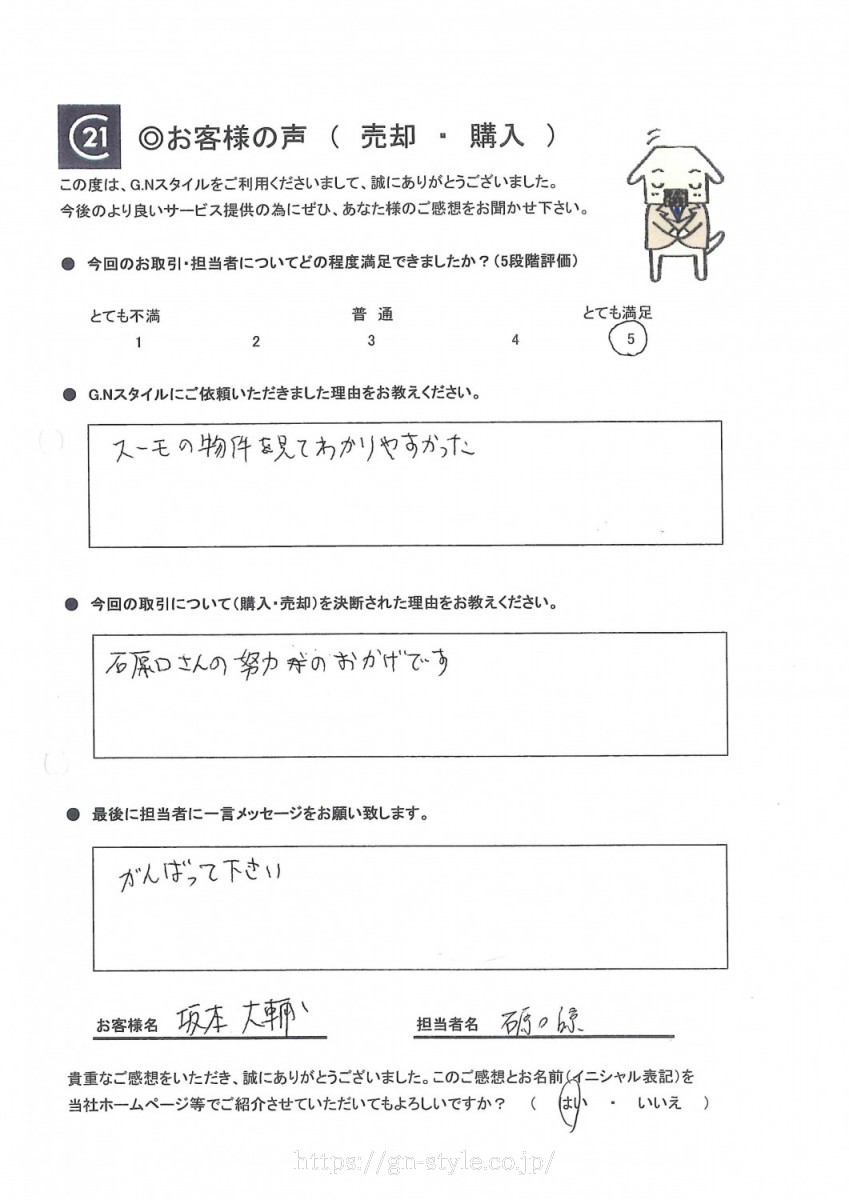 C21
◎お客様の声 ( 売却 ・ 購入 )
この度は、G.Nスタイルをご利用くださいまして、誠にありがとうございました。
今後のより良いサービス提供の為にぜひ、あなた様のご感想をお聞かせ下さい。
● 今回のお取引・担当者についてどの程度満足できましたか?(5段階評価)
とても不満 普 通 とても満足
1 2 3 4 5
● G.Nスタイルにご依頼いただきました理由をお教えください。
スーモの物件を見てわかりやすかった
● 今回の取引について(購入・売却)を決断された理由をお教えください。
石原口さんの努力のおかげです
● 最後に担当者に一言メッセージをお願い致します。
がんばって下さい
お客様名 坂本 大輔 担当者名
貴重なご感想をいただき、誠にありがとうございました。このご感想とお名前(イニシャル表記)を
当社ホームページ等でご紹介させていただいてもよろしいですか? ( はい ・ いいえ )
https://gn-style.co.jp/